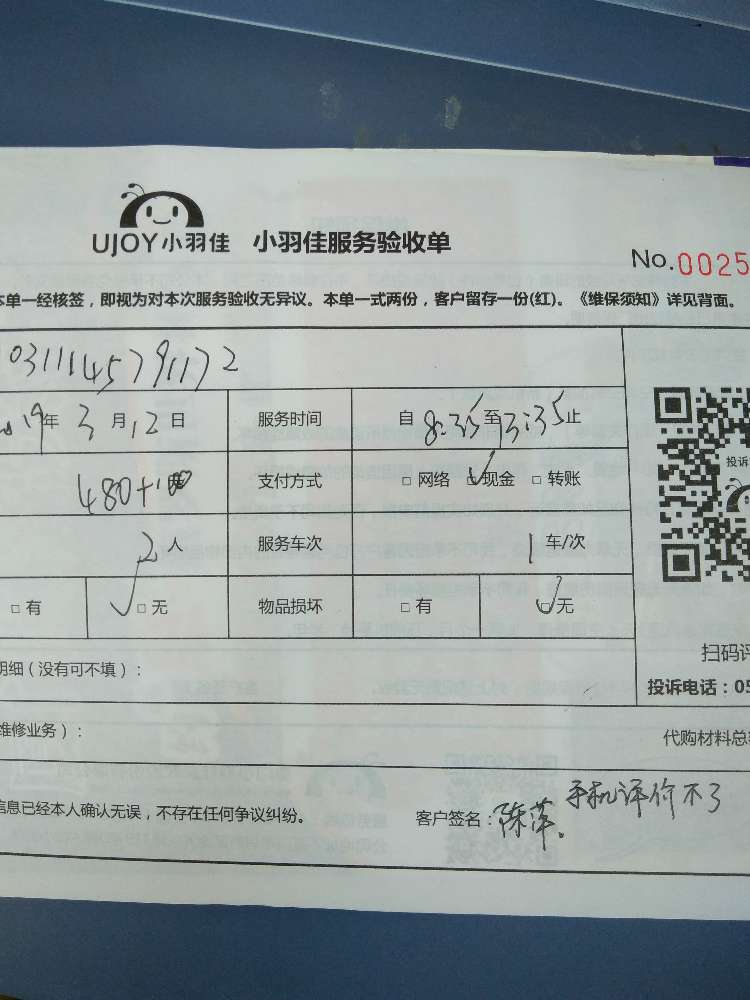 UJOY小羽佳 小羽佳服务验收单
No.0025
本单一经核签，即视为对本次服务验收无异议。本单一式两份，客户留存一份(红)。《维保须知》详见背面。
0311145791172
19年3月12日 服务时间 自8:35至13:35止
480+100 支付方式 □网络 □现金 □转账
投诉
2人 服务车次 1车/次
□有 □无 物品损坏 □有 □无
扫码评
明细（没有可不填）：
投诉电话：05
维修业务）：
代购材料总
信息已经本人确认无误，不存在任何争议纠纷。 客户签名：陈萍。手机评价不了